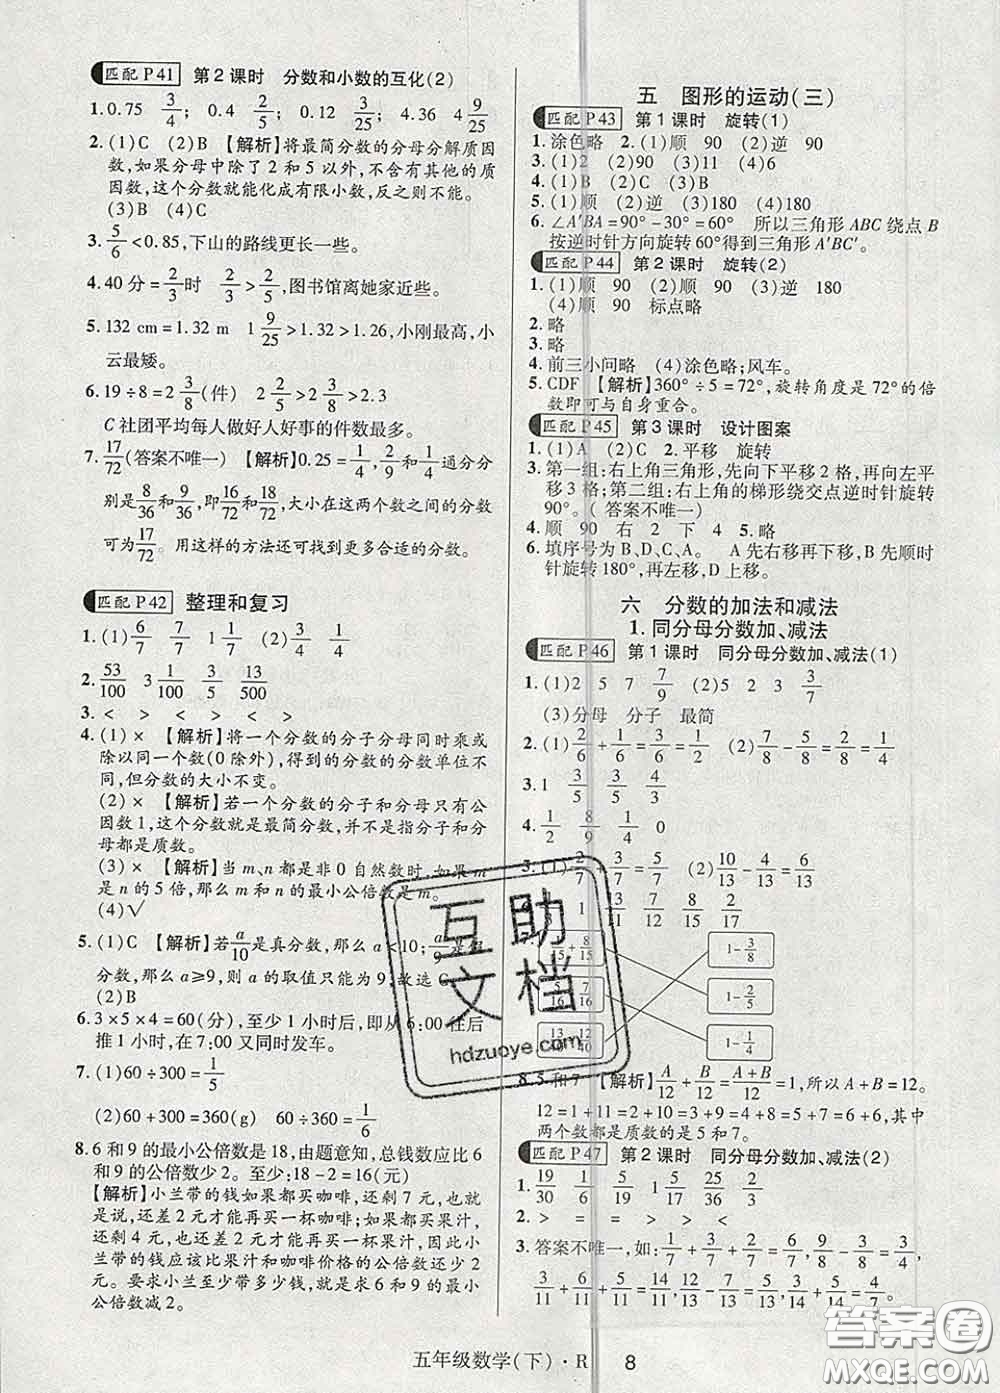 匹配 P41 第2课时 分数和小数的互化(2)
1. 0.75 3/4; 0.4 2/5; 0.12 3/25; 4.36 4 9/25
2. (1)C (2)B 【解析】将最简分数的分母分解质因
数,如果分母中除了2和5以外,不含有其他的质
因数,这个分数就能化成有限小数,反之则不能。
(3)B (4)C
3. 5/6<0.85,下山的路线更长一些。
4. 40分=2/3时 2/3>3/5,图书馆离她家近些。
5. 132 cm=1.32 m 1 9/25>1.32>1.26,小刚最高,小
云最矮。
6. 19÷8=2 3/8(件) 2 2/5>2 3/8>2.3
C社团平均每人做好人好事的件数最多。
7. 17/72(答案不唯一) 【解析】0.25=1/4,2/9和1/4通分分
别是8/36和9/36,即16/72和18/72,大小在这两个数之间的分数
可为17/72。用这样的方法还可找到更多合适的分数。
匹配 P42 整理和复习
1. (1)6/7 7/7 1 1/7 (2)3/4 1/4
2. 53/100 3 1/10 3/5 13/500
3. < < > < > <
4. (1)× 【解析】将一个分数的分子分母同时乘或
除以同一个数(0除外),得到的分数的分数单位不
同,但分数的大小不变。
(2)× 【解析】若一个分数的分子和分母只有公
因数1,这个分数就是最简分数,并不是指分子和分
母都是质数。
(3)× 【解析】当m、n都是非0自然数时,如果m
是n的5倍,那么m和n的最小公倍数是m。
(4)√
5. (1)C 【解析】若a/10是真分数,那么a<10;a/9是假
分数,那么a≥9,则a的取值只能为9,故选C。
(2)B
6. 3×5×4=60(分),至少1小时后,即从6:00往后
推1小时,在7:00又同时发车。
7. (1)60÷300=1/5
(2)60+300=360(g) 60÷360=1/6
8. 6和9的最小公倍数是18,由题意知,总钱数应比6
和9的公倍数少2。至少:18-2=16(元)
【解析】小兰带的钱如果都买咖啡,还剩4元,也就
是说,还差2元才能再买一杯咖啡;如果都买果汁,
还剩4元,也就是还差2元才能再买一杯果汁,即小
兰带的钱应该比果汁和咖啡价格的公倍数还少2
元。要求小兰至少带多少钱,就是求6和9的最小
公倍数减2。
五 图形的运动(三)
匹配 P43 第1课时 旋转(1)
1. 涂色略 (1)顺 90 (2)逆 90
3. (1)2 (2)90 (3)11 (4)6
4. (1)B (2)C (3)B
5. (1)顺 (2)逆 (3)180 (4)180
6. ∠A′BA=90°-30°=60° 所以三角形ABC绕点B
按逆时针方向旋转60°得到三角形A′BC′。
匹配 P44 第2课时 旋转(2)
1. (1)顺 90 (2)顺 90 (3)逆 180
(4)顺 90 标点略
2. 略
3. 略
4. 前三小问略 (4)涂色略;风车。
5. CDF 【解析】360°÷5=72°,旋转角度是72°的倍
数即可与自身重合。
匹配 P45 第3课时 设计图案
1. (1)A (2)C 2. 平移 旋转
3. 第一组:右上角三角形,先向下平移2格,再向左平
移3格;第二组:右上角的梯形绕交点逆时针旋转
90°。(答案不唯一)
4. 顺 90 右 2 下 4 5. 略
6. 填序号为B、D、C、A。 A先右移再下移,B先顺时
针旋转180°,再左移,D上移。
六 分数的加法和减法
1. 同分母分数加、减法
匹配 P46 第1课时 同分母分数加、减法(1)
1. (1)2 5 7 7/9 (2)5 2 3 3/7
(3)分母 分子 最简
2. (1)2/6+1/6=3/6=1/2 (2)7/8-5/8=2/8=1/4
3. 1 3/5 3/5 1/4
4. 1/2 8/9 1/4 0
2/7+3/7=5/7 (2)10/13-4/13=6/13
1 7/12 7/8 8/15 2/9
1/15+8/15
13/40-12/40
1-3/8
1-2/5
1-1/4
8. 5和7 【解析】A/12+B/12=(A+B)/12=1,所以A+B=12。
12=1+11=2+10=3+9=4+8=5+7=6+6,其中
两个数都是质数的是5和7。
匹配 P47 第2课时 同分母分数加、减法(2)
1. 19/30 1/6 5/19 1 5/8 25/36 2/23
2. > = = > < =
3. 答案不唯一,如:1/7+3/7+2/7=6/7,9/4-3/4=3/4,
3/11+6/11+5/11=14/11,13/12-6/12=7/12,4/14+5/14=9/14。
五年级数学(下)·R 8
互助
文档
hdzuoye.com
答案圈
MXQE.COM